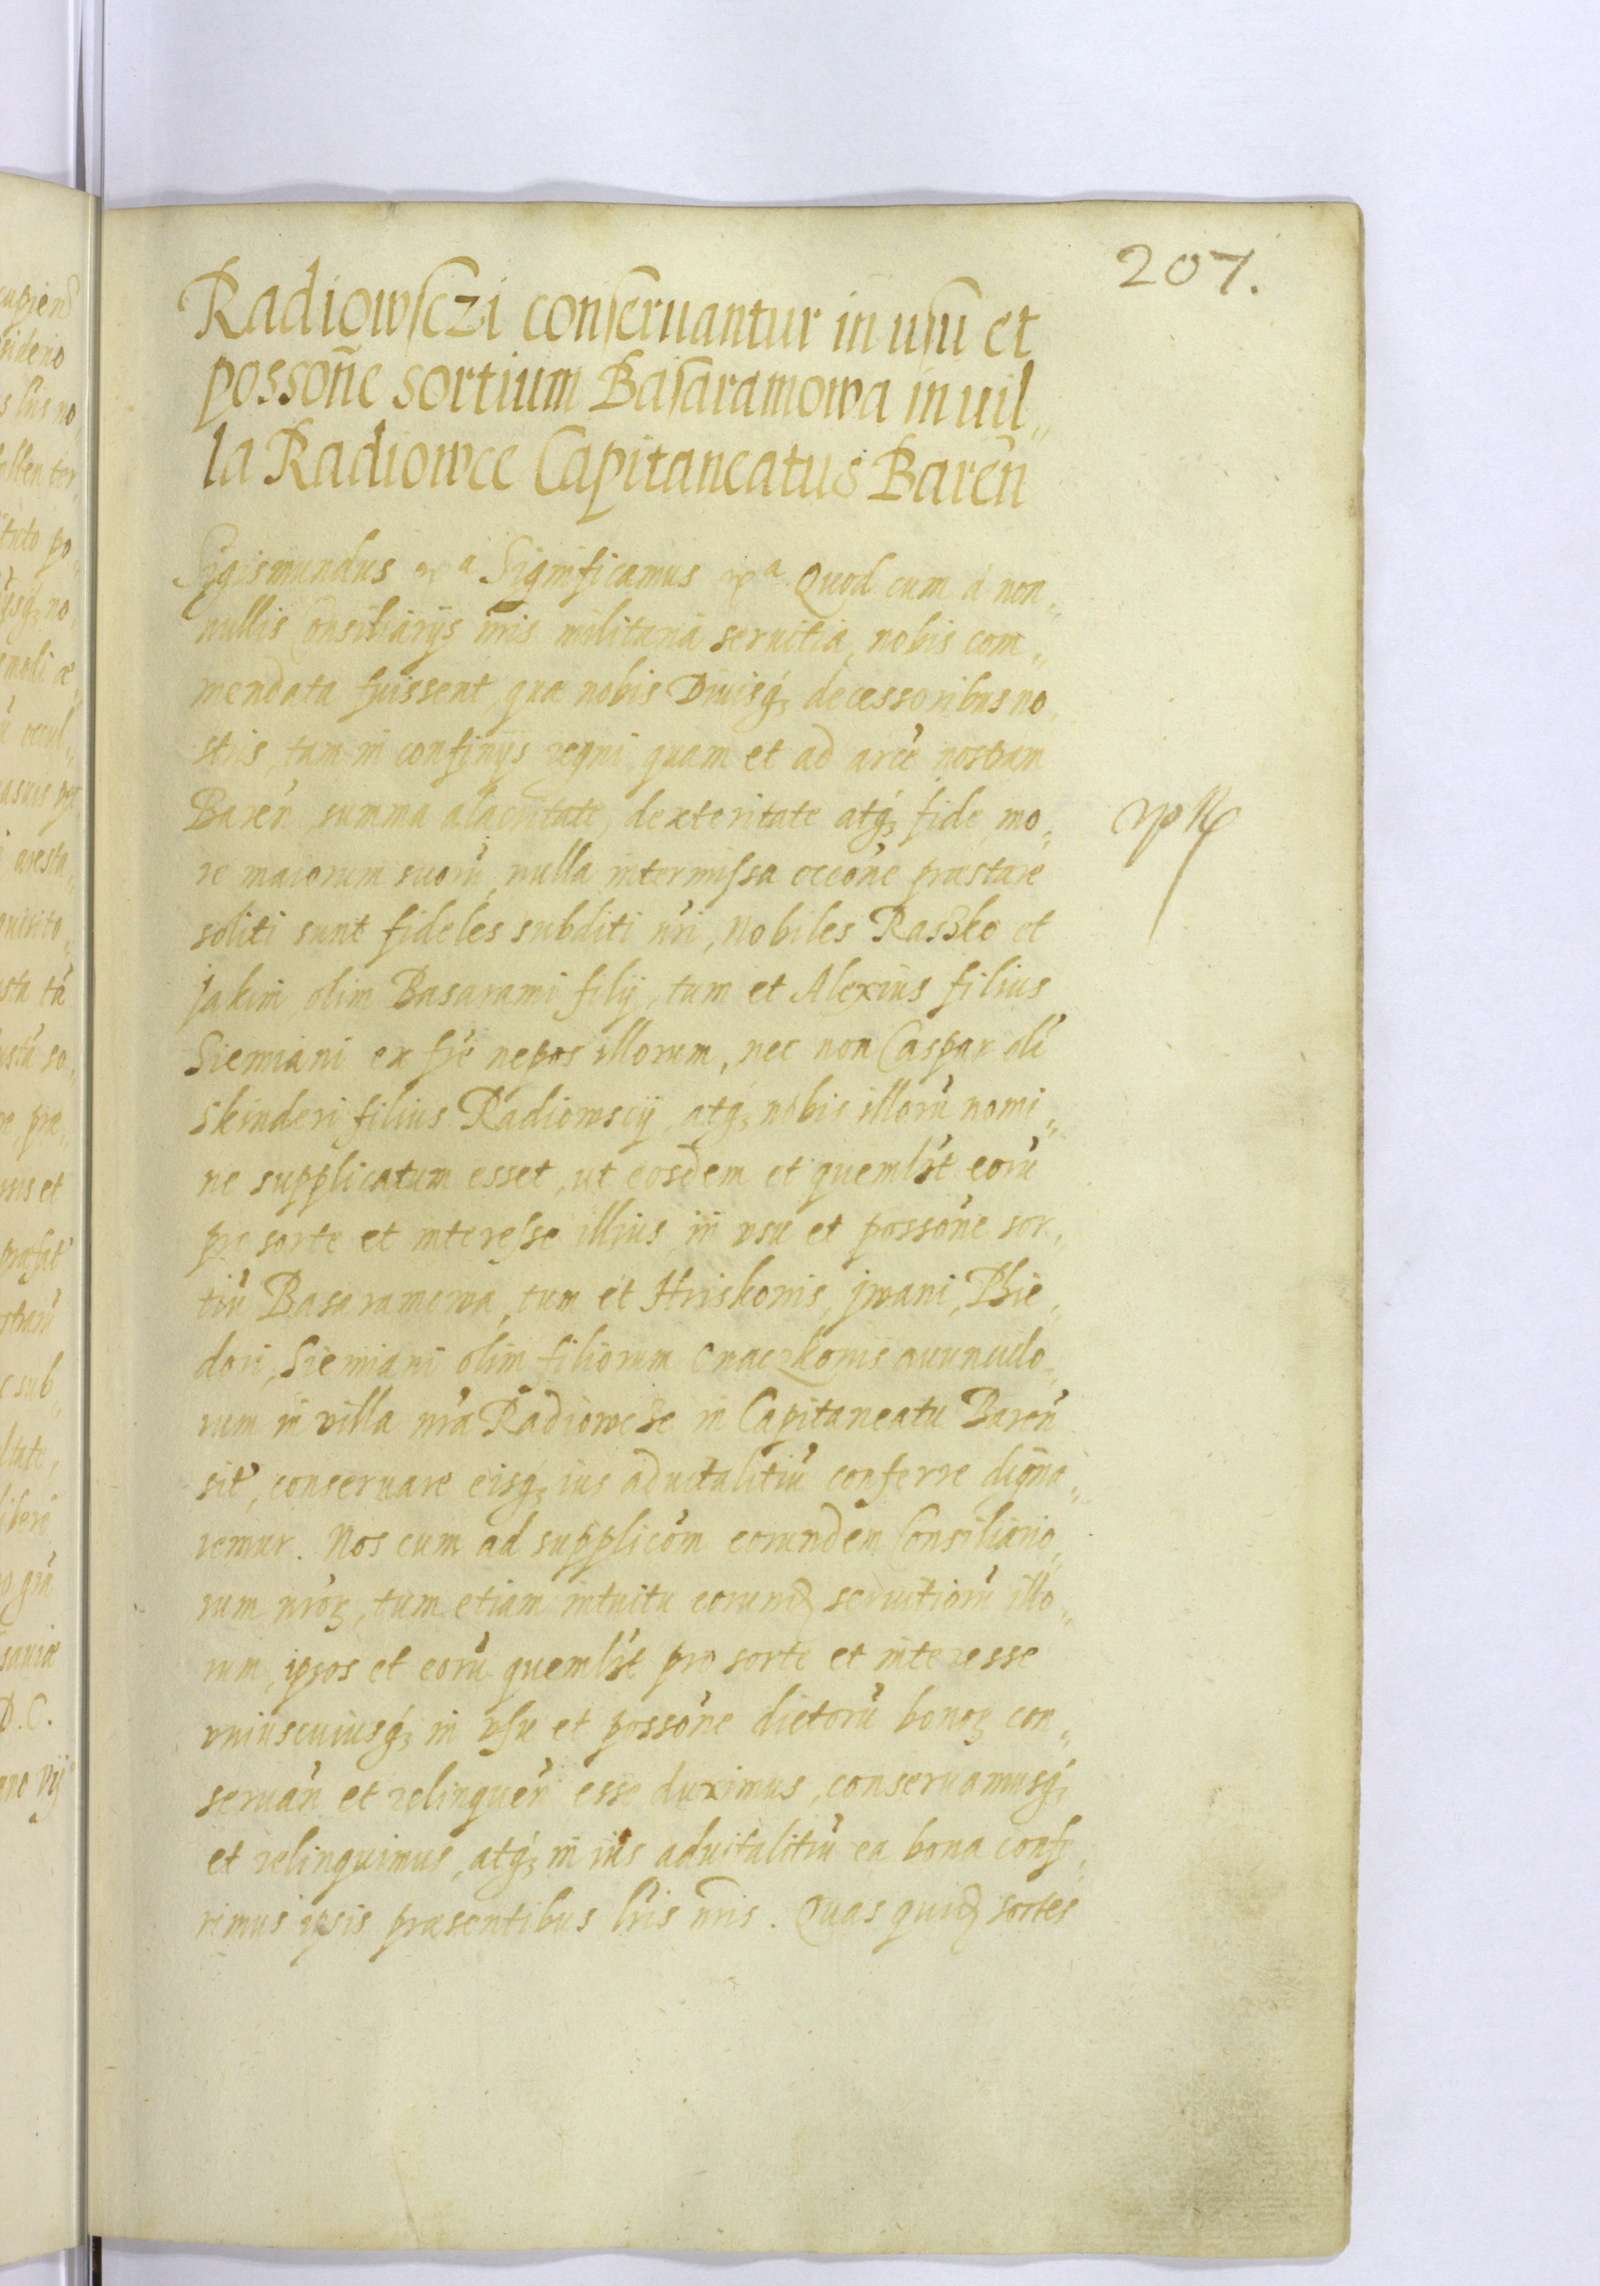 207.
Radiowsczi conseruantur in usu et
posson̄e sortium Basaramowa in uil„
la Radiowce Capitaneatus Baren̄
Sigismundus Significamus Quod cum a non„
nullis Consiliarijs nr̄is militaria seruitia nobis com„
mendata fuissent quæ nobis Diuisq3 decessoribus no„
stris, tam in confinijs regni quam et ad arcē nostram
Baren̄, summa alacritate, dexteritate atq3 fide, mo„
re maiorum suorū, nulla intermissa occōne præstare
soliti sunt fideles subditi nr̄i, Nobiles Raszko et
Jakim olim Basarami filij, tum et Alexius filius
Siemiani ex fr̄e nepos illorum, nec non Caspar oli
Skinderi filius Radiowscij, atq3 nobis illorū nomi„
ne supplicatum esset, ut eosdem et quemlib̄t eorū
pro sorte et interesse illius in vsu et possōne sor„
tiū Basaramowa, tum et Hriskonis, Jwani, Phie„
dori, Siemiani olim filiorum Cnaczkonis auunculo„
rum in villa nr̄a Radiowcze in Capitaneatu Baren̄
sit̄, conseruare eisq3 ius aduitalitiū conferre digna„
remur. Nos cum ad supplicōm eorundem Consiliario„
rum nr̄oꝝ, tum etiam intuitu eorund̄ seruitiorū illo„
rum, ipsos et eorū quemlib̄t pro sorte et interesse
vniuscuiusq3 in vsu et possōne dictorū bonoꝝ con„
seruan̄ et relinquen̄ esse duximus, conseruamusq3
et relinquimus, atq3 in ius aduitalitiū ea bona confe„
rimus ipsis præsentibus lr̄is nr̄is. Quas quid̄ sortes